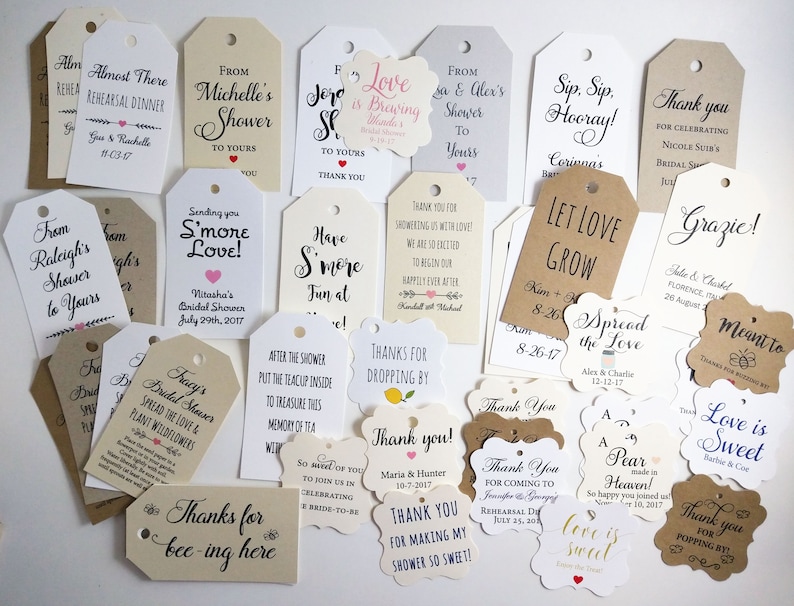 Almost
Almost There
REHEARSAL DINNER
Gus & Rachelle
11-03-17
FROM
Michelle's
Shower
TO YOURS
FROM
TO YOURS
THANK YOU
Love
is Brewing
Wanda's
Bridal Shower
9-19-17
FROM
& Alex's
Shower
To
Yours
Sip, Sip,
Hooray!
Corinna's
Bridal Shower
Thank you
FOR CELEBRATING
NICOLE SUIB'S
BRIDAL
From
Raleigh's
Shower
to Yours
Sending you
S'more
Love!
Nitasha's
Bridal Shower
July 29th, 2017
Have
S'more
Fun at
THANK YOU FOR
SHOWERING US WITH LOVE!
WE ARE SO EXCITED
TO BEGIN OUR
HAPPILY EVER AFTER.
Kendall and Michael
LET LOVE
GROW
Kim +
8-26-
Kim
8-26-17
Grazie!
Julie & Charbel
FLORENCE, ITALY
26 August
Tracy's
Bridal Shower
SPREAD THE LOVE &
PLANT WILDFLOWERS
Place the seed paper in a
flowerpot or in your garden.
Cover lightly with soil.
AFTER THE SHOWER
PUT THE TEACUP INSIDE
TO TREASURE THIS
MEMORY OF TEA
WITH
THANKS FOR
DROPPING BY
Spread
the Love
Alex & Charlie
12-12-17
Meant to
THANKS FOR BUZZING BY!
Love is
Sweet
Barbie & Coe
So sweet of you
TO JOIN US IN
CELEBRATING
THE BRIDE-TO-BE
Thank you!
Maria & Hunter
10-7-2017
THANK YOU
THANK YOU
FOR COMING TO
Jennifer & George's
REHEARSAL
JULY 25, 201
A
A
Pear
made in
Heaven!
So happy you joined us!
November 10, 2017
Thanks for
bee-ing here
THANK YOU
FOR MAKING MY
SHOWER SO SWEET!
love is
sweet
Enjoy the Treat!
Thank you
FOR POPPING BY!